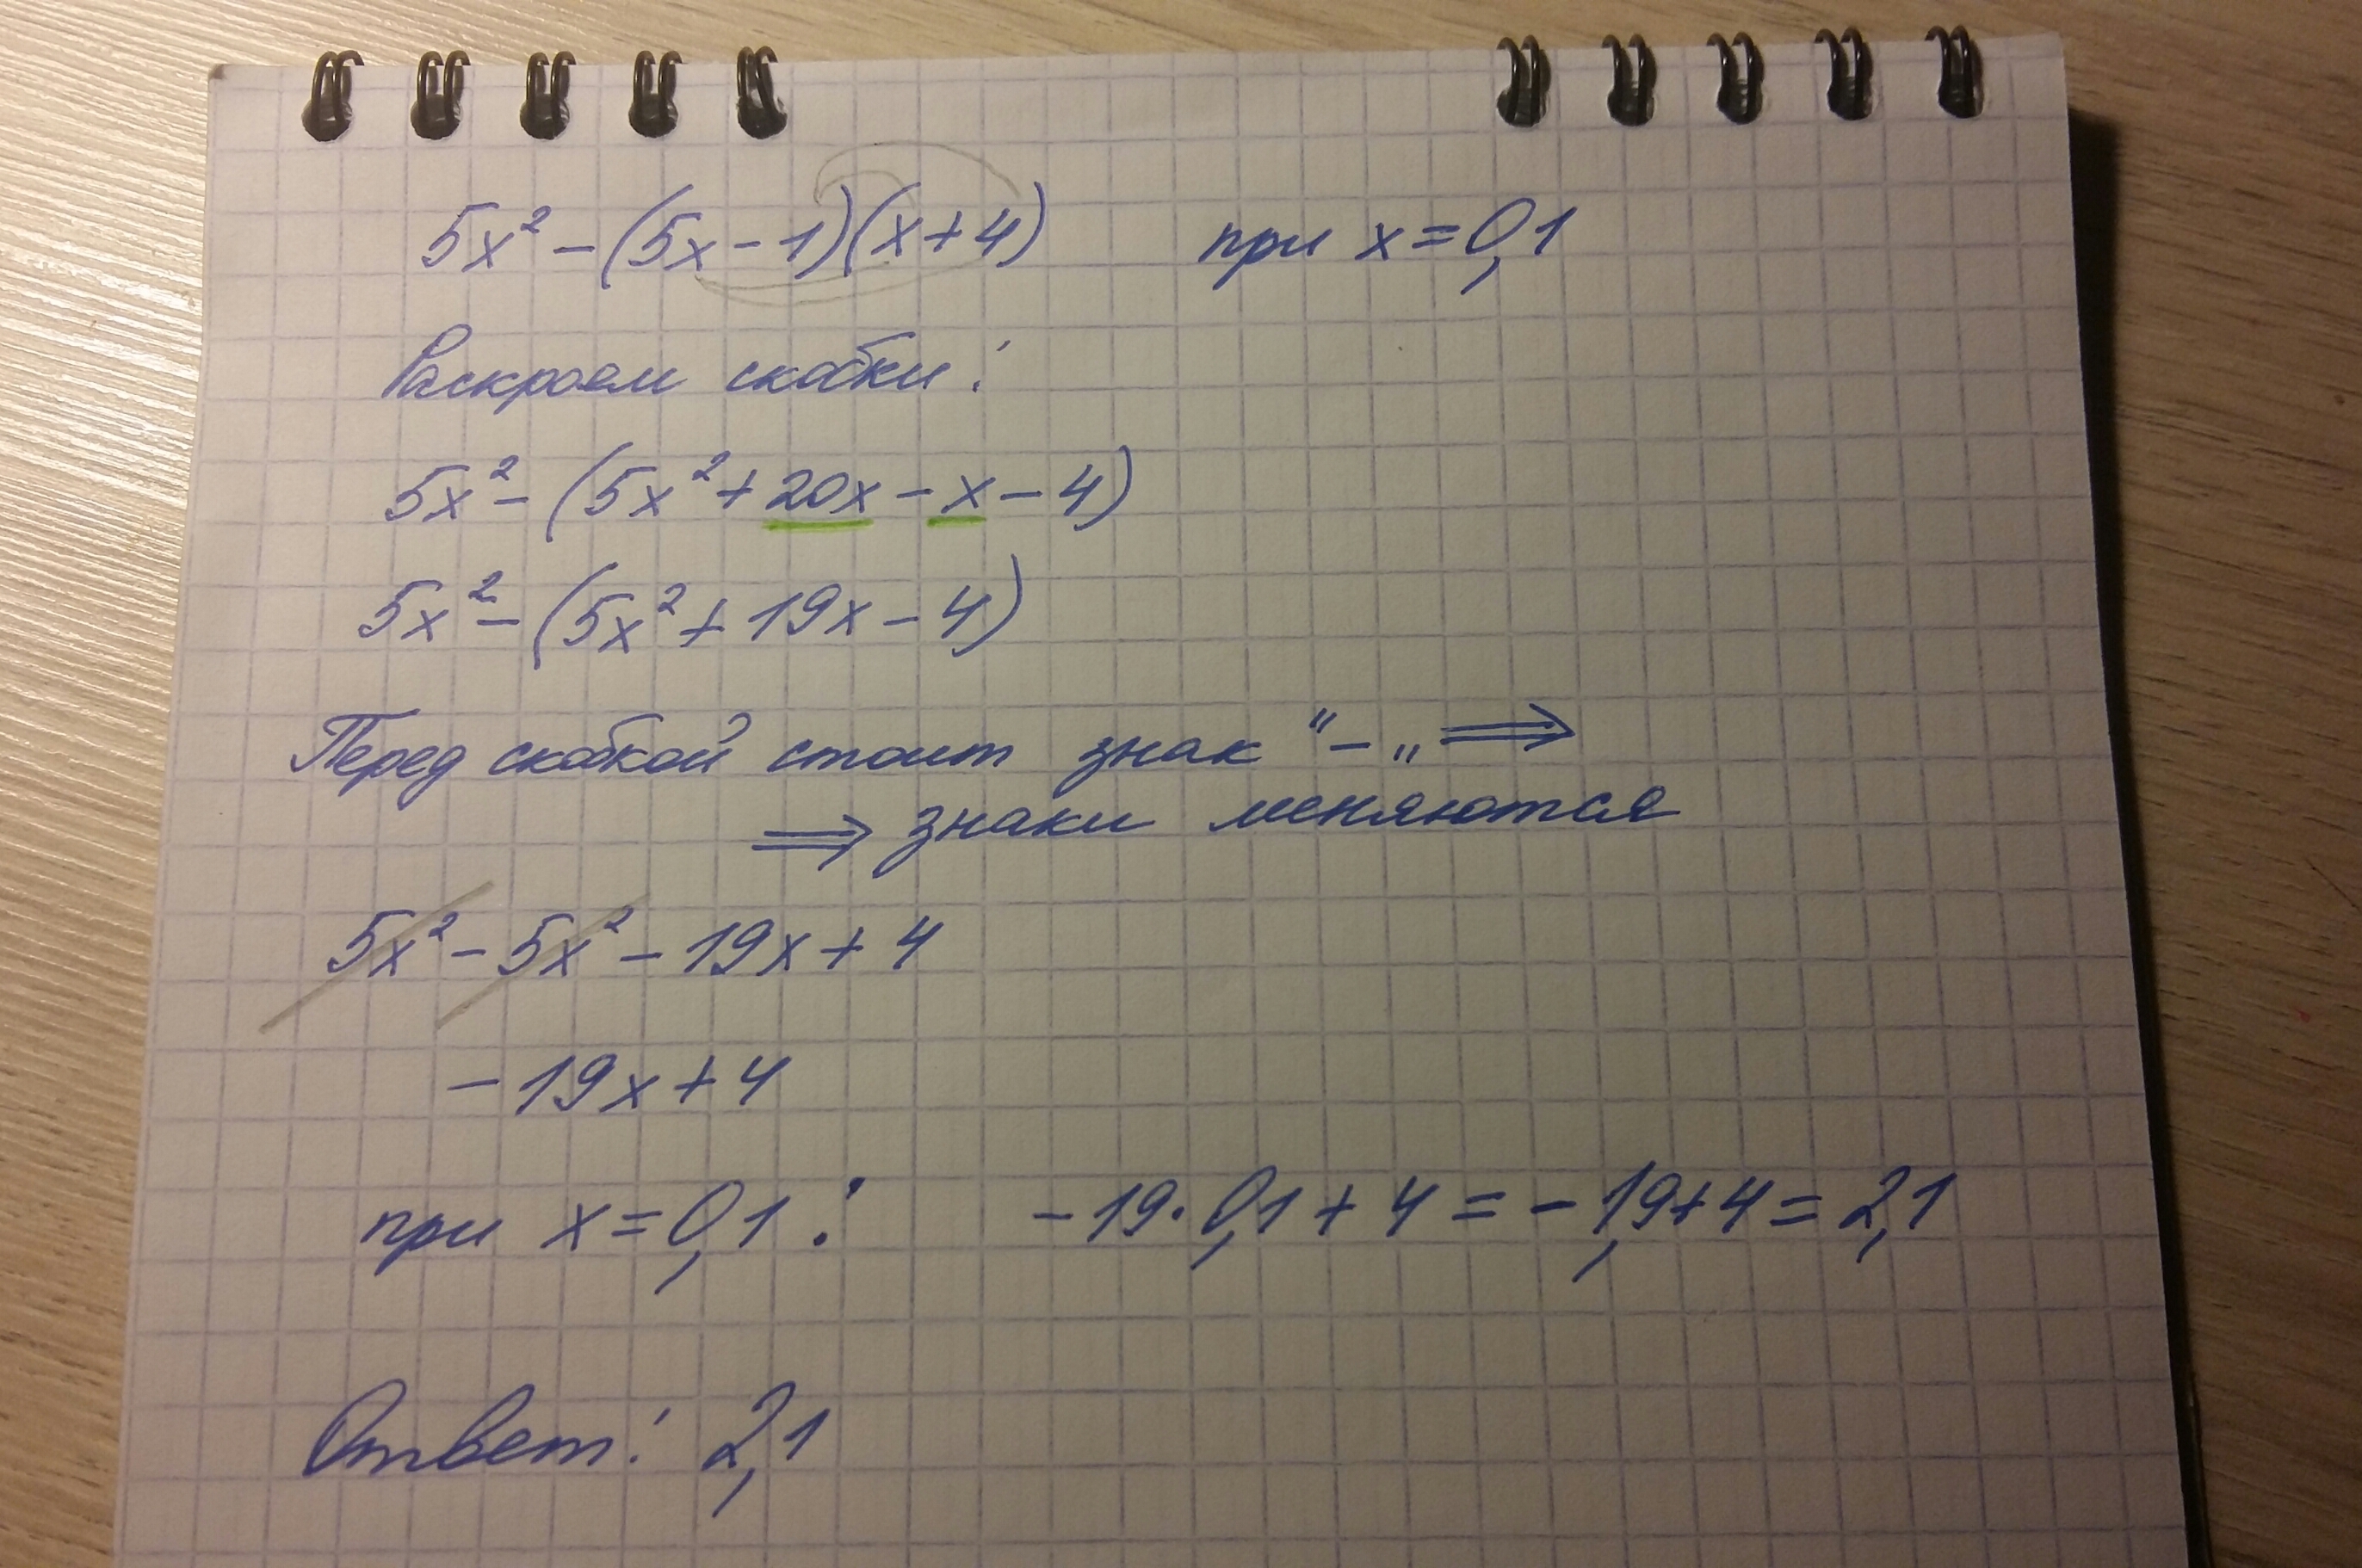 5x² - (5x - 1)(x + 4) при x = 0,1
Раскроем скобки:
5x² - (5x² + 20x - x - 4)
5x² - (5x² + 19x - 4)
Перед скобкой стоит знак "-" ⟹
⟹ знаки меняются
5x² - 5x² - 19x + 4
- 19x + 4
при x = 0,1: - 19 · 0,1 + 4 = - 1,9 + 4 = 2,1
Ответ: 2,1